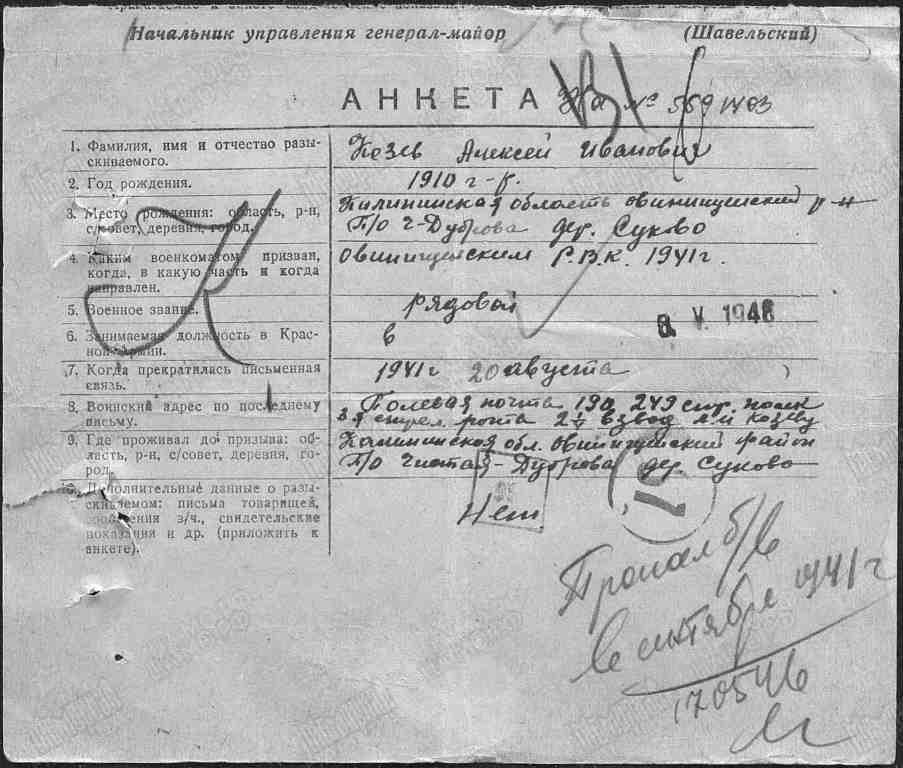 Начальник управления генерал-майор (Шавельский)
АНКЕТА № 5591403
1. Фамилия, имя и отчество разы-
скиваемого.
Козев Алексей Иванович
2. Год рождения.
1910 г-р.
3. Место рождения: область, р-н,
с/совет, деревня, город.
Калининская область Овинищенский р-н
П/О Ч-Дуброва дер. Суково
4. Каким военкоматом призван,
когда, в какую часть и когда
направлен.
Овинищенским Р.В.К. 1941г.
5. Военное звание.
рядовой
8 V 1948
6. Занимаемая должность в Крас-
ной Армии.
7. Когда прекратилась письменная
связь.
1941г 20 августа
8. Воинский адрес по последнему
письму.
Полевая почта 190 249 стр. полк
3я стрел. рота 2й взвод Козеву
9. Где проживал до призыва: об-
ласть, р-н, с/совет, деревня, го-
род.
Калининская обл. Овинищенский район
П/О Чистая-Дуброва дер. Суково
10. Дополнительные данные о разы-
скиваемом: письма товарищей,
сообщения з/ч., свидетельские
показания и др. (приложить к
анкете).
Нет
Пропал б/в
в сентябре 1941г
170546